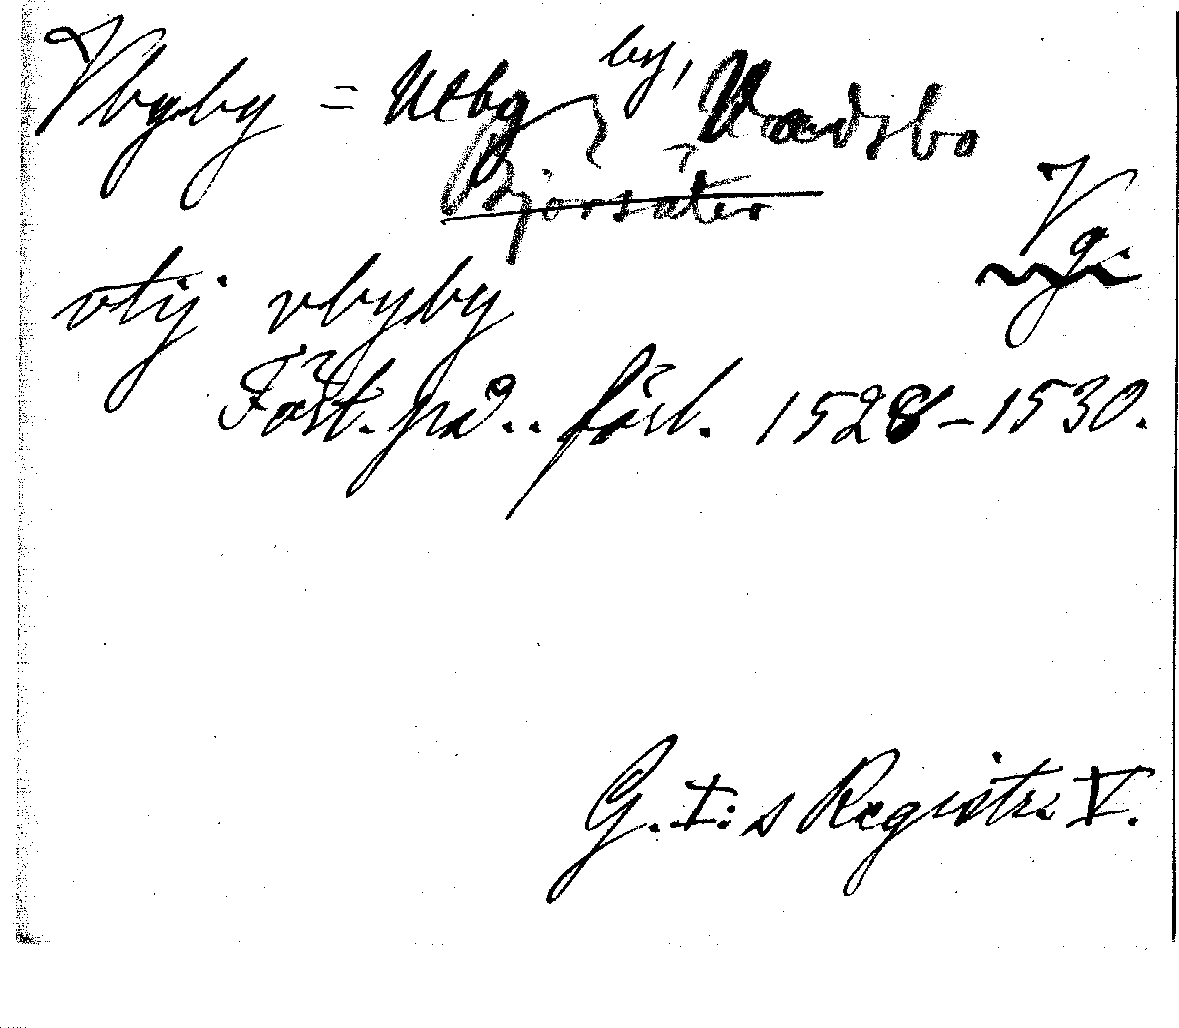 Vbyby = Utby by, Vadsbo
Björsäter
Vg.
vtij vbyby
Fört. på .. förl. 1528–1530.
G. I:s Registr. V.